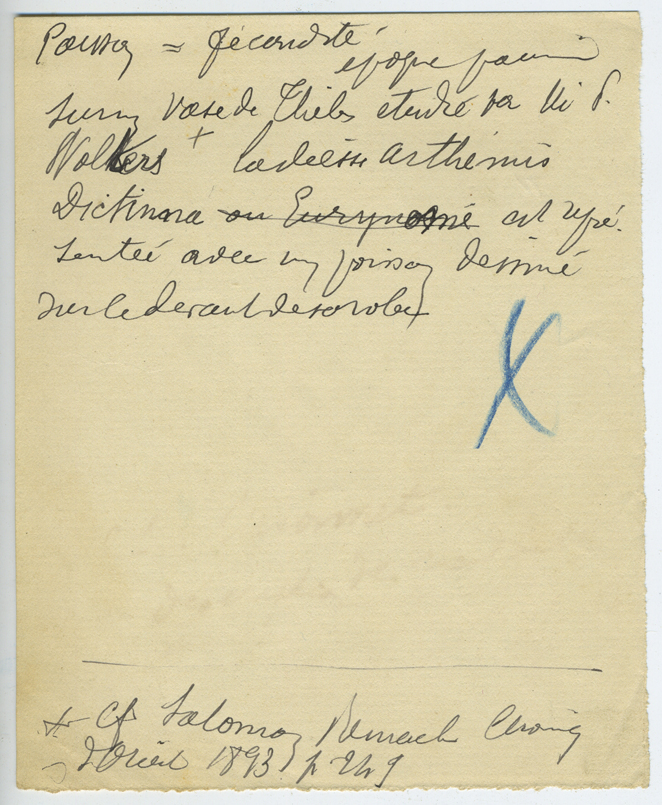 Poisson = fécondité
époque
sur un vase de Thèbes étudié par
Wolters + la déesse Arthémis
Dictinna ou Eurynomé est repré-
sentée avec un poisson dessiné
sur le devant de sa robe
+ Cf Salomon Reinach Chroniq
d'Orient 1893 p 249